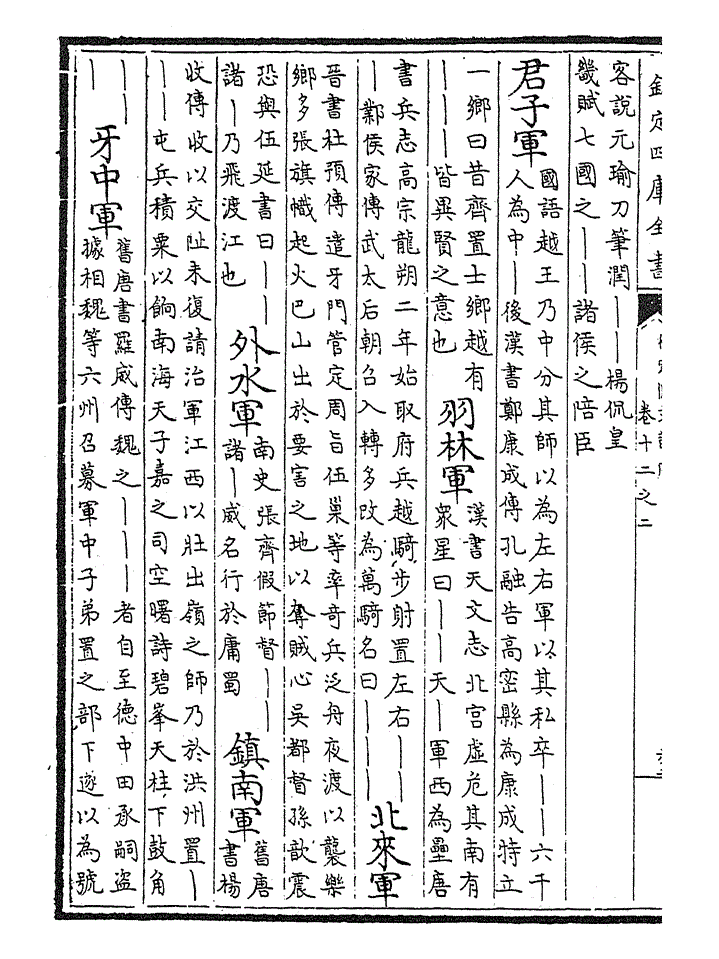 欽定四庫全書
卷十二之二
容說元瑜刀筆潤丨丨楊侃皇
畿賦七國之丨丨諸侯之陪臣
君子軍
國語越王乃中分其師以為左右軍以其私卒丨丨六千
人為中丨後漢書鄭康成傳孔融告高密縣為康成特立
一鄉曰昔齊置士鄉越有
丨丨丨皆異賢之意也
羽林軍
漢書天文志北宮虛危其南有
眾星曰丨丨天丨軍西為壘唐
書兵志高宗龍朔二年始取府兵越騎步射置左右丨丨
丨鄴侯家傳武太后朝召入轉多改為萬騎名曰丨丨丨
北來軍
晉書杜預傳遣牙門管定周旨伍巢等率奇兵泛舟夜渡以襲樂
鄉多張旗幟起火巴山出於要害之地以奪賊心吳都督孫歆震
恐與伍延書曰丨丨
諸丨乃飛渡江也
外水軍
南史張齊假節督丨丨
諸丨威名行於庸蜀
鎮南軍
舊唐
書楊
收傳收以交阯未復請治軍江西以壯出嶺之師乃於洪州置丨
丨丨屯兵積粟以餉南海天子嘉之司空曙詩碧峯天柱下鼓角
丨丨
丨
牙中軍
舊唐書羅威傳魏之丨丨丨者自至德中田承嗣盜
據相魏等六州召募軍中子弟置之部下遂以為號